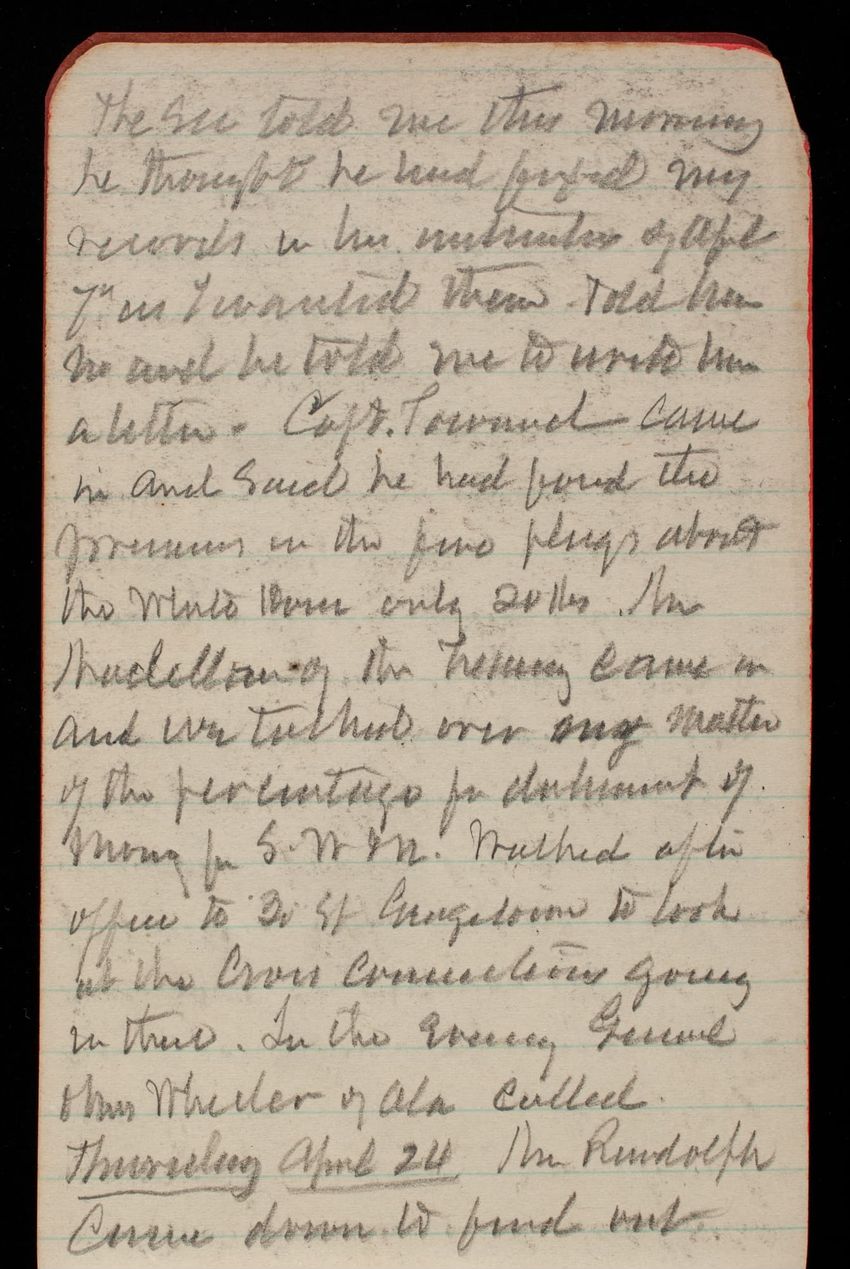 The Sec told me this morning
he thought he had fixed my
records in his instructions of Apl
7" as I wanted them. Told him
no and he told me to write him
a letter. Capt. Townsend came
in and said he had found the
pressures in the fire plugs about
the White House only 20 lbs. Mr
Maclellan of the Treasury came in
and we talked over my matter
of the percentage for
Money for S. W & M. Walked after
office to 30 St Georgetown to look
at the Cross Connections going
in there. In the evening General
Wheeler of Ala called.
Thursday April 24 Mr Rudolph
Came down to find out